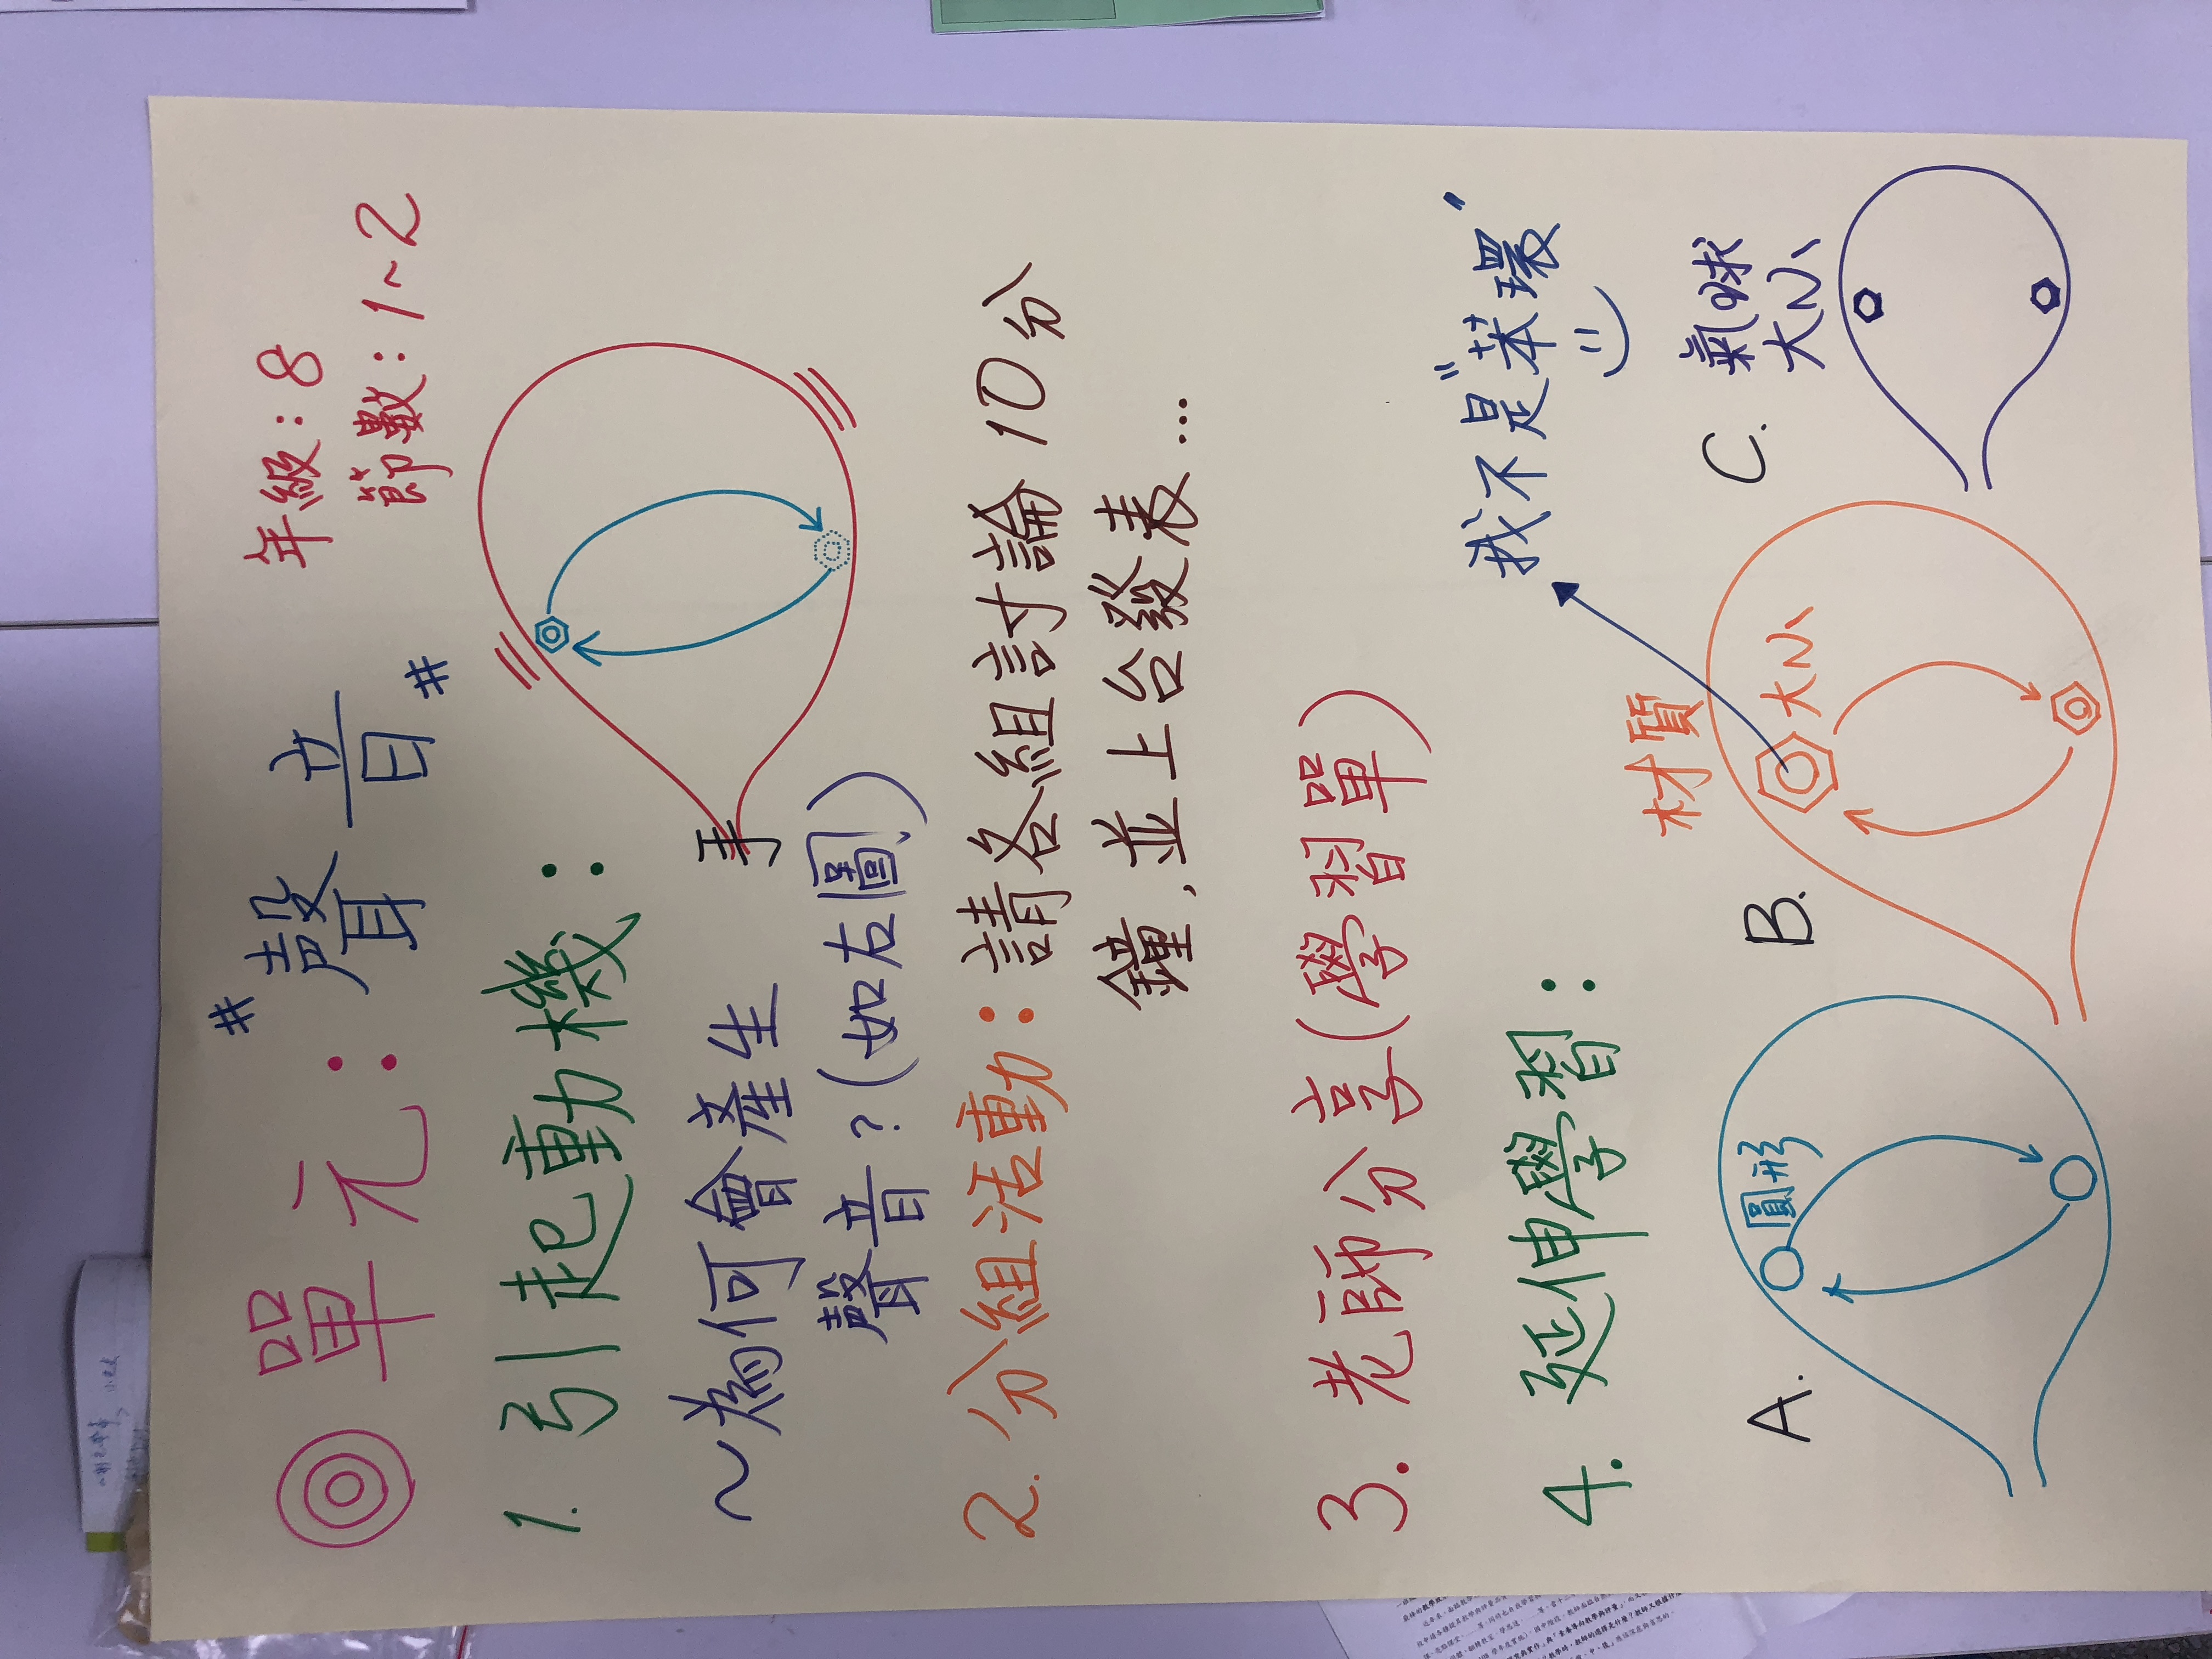 ◎單元：
#聲音#
年級：8
節數：1~2
1. 引起動機：
~為何會產生
聲音？(如右圖)
手
2. 分組活動：請各組討論10分
鐘，並上台發表...
3. 老師分享(學習單)
4. 延伸學習：
A.
圓形
材質
B.
大小
我不是"苯環"
C. 氣球
大小